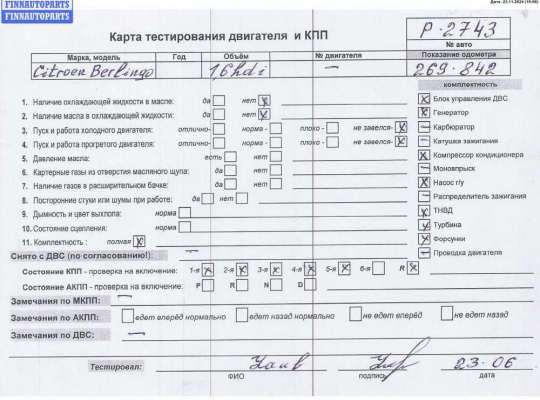 FINNAUTOPARTS
FINNAUTOPARTS
Дата: 23.11.2024
Карта тестирования двигателя и КПП
P-2743
№ авто
Марка, модель Год Объём № двигателя Показание одометра
Citroen Berlingo 1,6hdi — 269.842
комплектность
1. Наличие охлаждающей жидкости в масле: да нет x
2. Наличие масла в охлаждающей жидкости: да нет x
3. Пуск и работа холодного двигателя: отлично- норма - плохо - не завелся- x
4. Пуск и работа прогретого двигателя: отлично- норма - плохо - не завелся- x
5. Давление масла: есть нет
6. Картерные газы из отверстия масляного щупа: да нет
7. Наличие газов в расширительном бачке: да нет
8. Посторонние стуки или шумы при работе: да нет
9. Дымность и цвет выхлопа: норма
10. Состояние сцепления: норма
11. Комплектность : полная x
x Блок управления ДВС
x Генератор
— Карбюратор
— Катушка зажигания
x Компрессор кондиционера
— Моновпрыск
x Насос г/у
— Распределитель зажигания
x ТНВД
x Турбина
x Форсунки
— Проводка двигателя
Снято с ДВС (по согласованию!): —
Состояние КПП - проверка на включение: 1-я x 2-я x 3-я x 4-я x 5-я x 6-я R x
Состояние АКПП - проверка на включение: P R N D
Замечания по МКПП: —
Замечания по АКПП: едет вперёд нормально едет назад нормально не едет вперёд не едет назад
Замечания по ДВС: —
Тестировал: 23-06
ФИО подпись дата